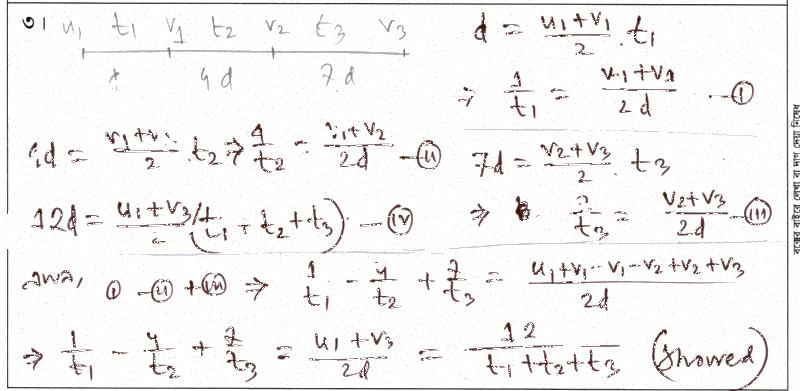 ৩। u₁ t₁ v₁ t₂ v₂ t₃ v₃
4d 7d
d = (u₁+v₁)/2 . t₁
⇒ 1/t₁ = (u₁+v₁)/2d --- (i)
4d = (v₁+v₂)/2 . t₂ ⇒ 4/t₂ = (v₁+v₂)/2d --- (ii)
7d = (v₂+v₃)/2 . t₃
⇒ 7/t₃ = (v₂+v₃)/2d --- (iii)
12d = (u₁+v₃)/2 (t₁ + t₂+t₃) --- (iv)
এখন, (i) - (ii) + (iii) ⇒ 1/t₁ - 4/t₂ + 7/t₃ = (u₁+v₁-v₁-v₂+v₂+v₃)/2d
⇒ 1/t₁ - 4/t₂ + 7/t₃ = (u₁+v₃)/2d = 12/(t₁+t₂+t₃) (Showed)
বক্সের বাইরে লেখা বা দাগ দেয়া নিষেধ